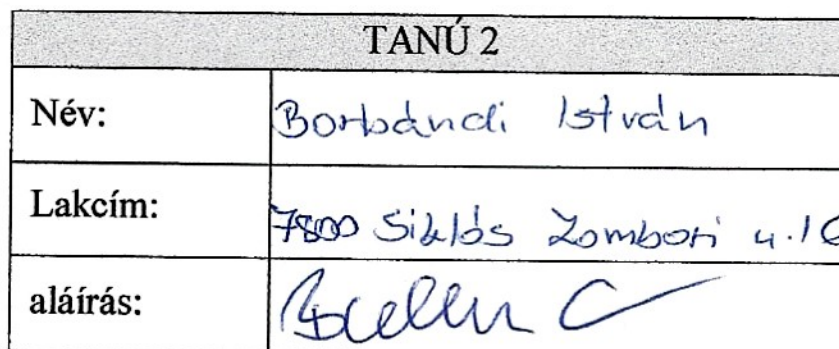 TANÚ 2
Név: Borbándi István
Lakcím: 7800 Siklós Zombori u. 1
aláírás: